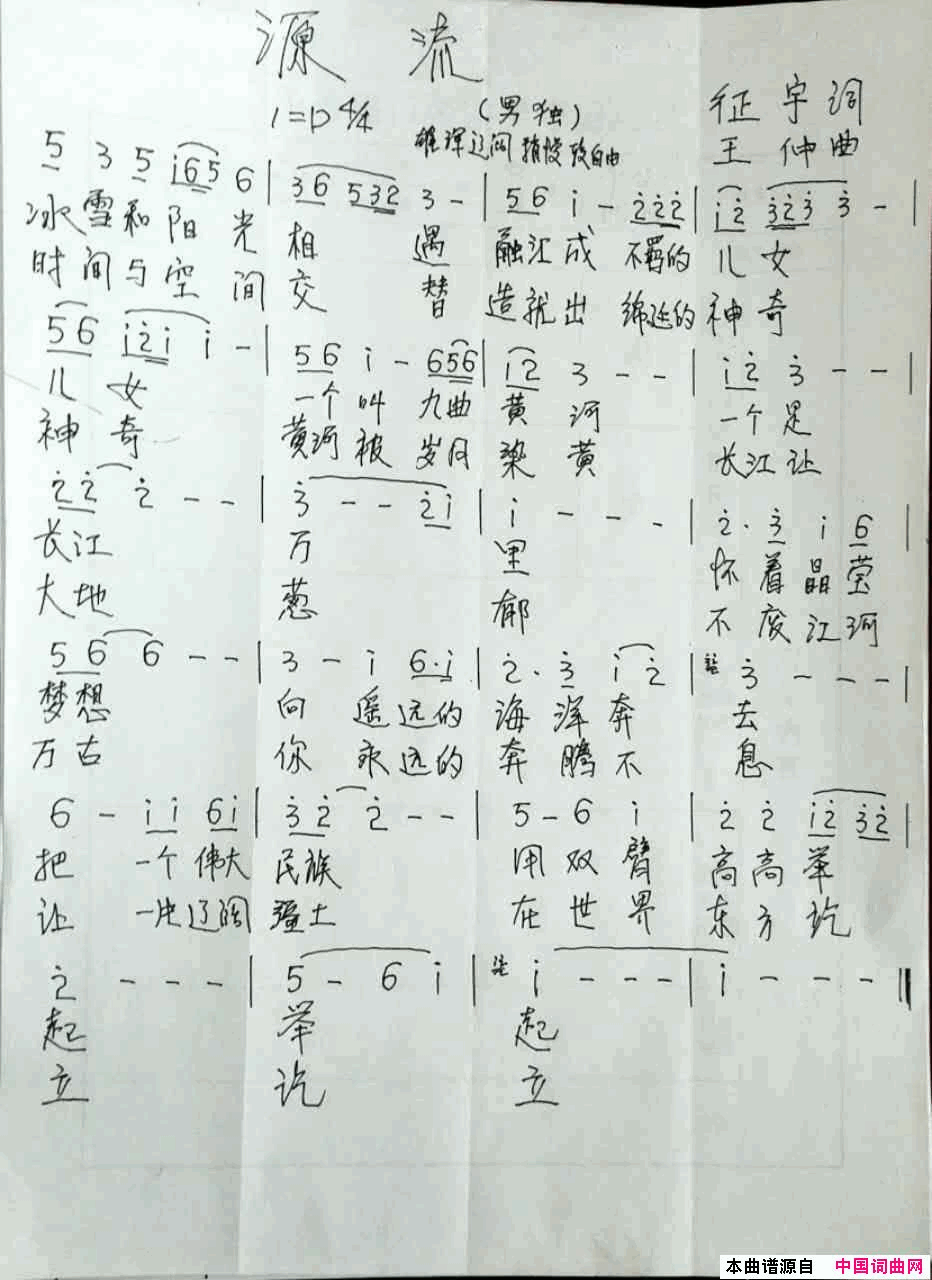 源 流
1=D 4/4 (男独) 征宇词
雄浑辽阔 稍慢 较自由 王仲曲
5 3 5 i65 6 | 36 532 3 - | 56 i - 222 | i2 323 3 - |
冰雪和阳光 相遇 融汇成 不羁的 儿女
时间与空间 交替 造就出 绵延的 神奇
56 i2i i - | 56 i - 656 | i2 3 - - | i2 3 - - |
儿女 一个叫九曲 黄河 一个是
神奇 黄河被岁月 染黄 长江让
22 2 - - | 3 - - 2i | i - - - | 2· 3 i 6 |
长江 万 里 怀着晶莹
大地 葱 郁 不废江河
56 6 - - | 3 - i 6·i | 2· 3 i 2 | 3 - - - |
梦想 向遥远的 海洋奔 去
万古 你永远的 奔腾不 息
6 - ii 6i | 32 2 - - | 5 - 6 i | 2 2 i2 32 |
把一个伟大 民族 用双臂 高高举
让一片辽阔 疆土 在世界 东方屹
2 - - - | 5 - 6 i | i - - - | i - - - ‖
起 举 起
立 屹 立
本曲谱源自 中国词曲网